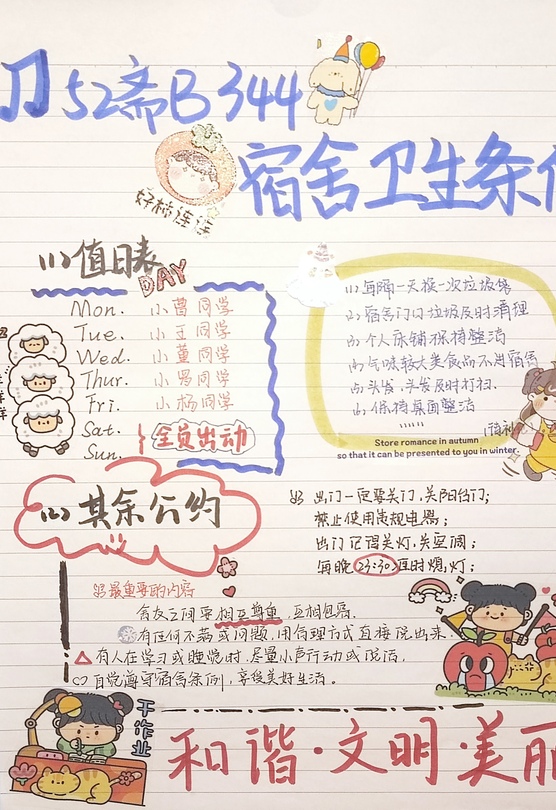 52斋B344
宿舍卫生条
好柿连连
(1)值日表
DAY
Mon. 小曹同学
Tue. 小王同学
Wed. 小董同学
Thur. 小罗同学
Fri. 小杨同学
Sat.
Sun.
全员出动
(1)每隔一天换一次垃圾袋
(2)宿舍门口垃圾及时清理
(3)个人床铺保持整洁
(4)气味较大类食品不进宿舍
(5)头发,头发及时打扫.
(6)保持桌面整洁
......
Store romance in autumn
so that it can be presented to you in winter.
(2)其余公约
出门一定要关门,关阳台门;
禁止使用违规电器;
出门记得关灯,关空调;
每晚23:30准时熄灯;
最重要的内容
舍友之间要相互尊重,互相包容.
有任何不满或问题,用合理方式直接说出来.
有人在学习或睡觉时,尽量小声行动或说话.
自觉遵守宿舍条例,享受美好生活.
干作业
和谐·文明·美丽